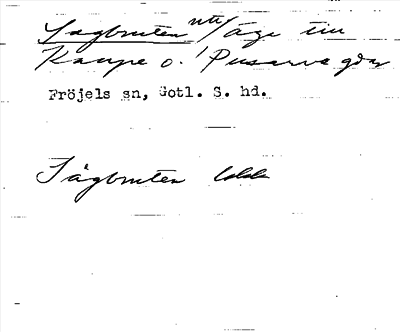 Sagbruten utt/äga till
Kaupe o. Pusarve gdar
Fröjels sn, Gotl. S. hd.
Sågbruten